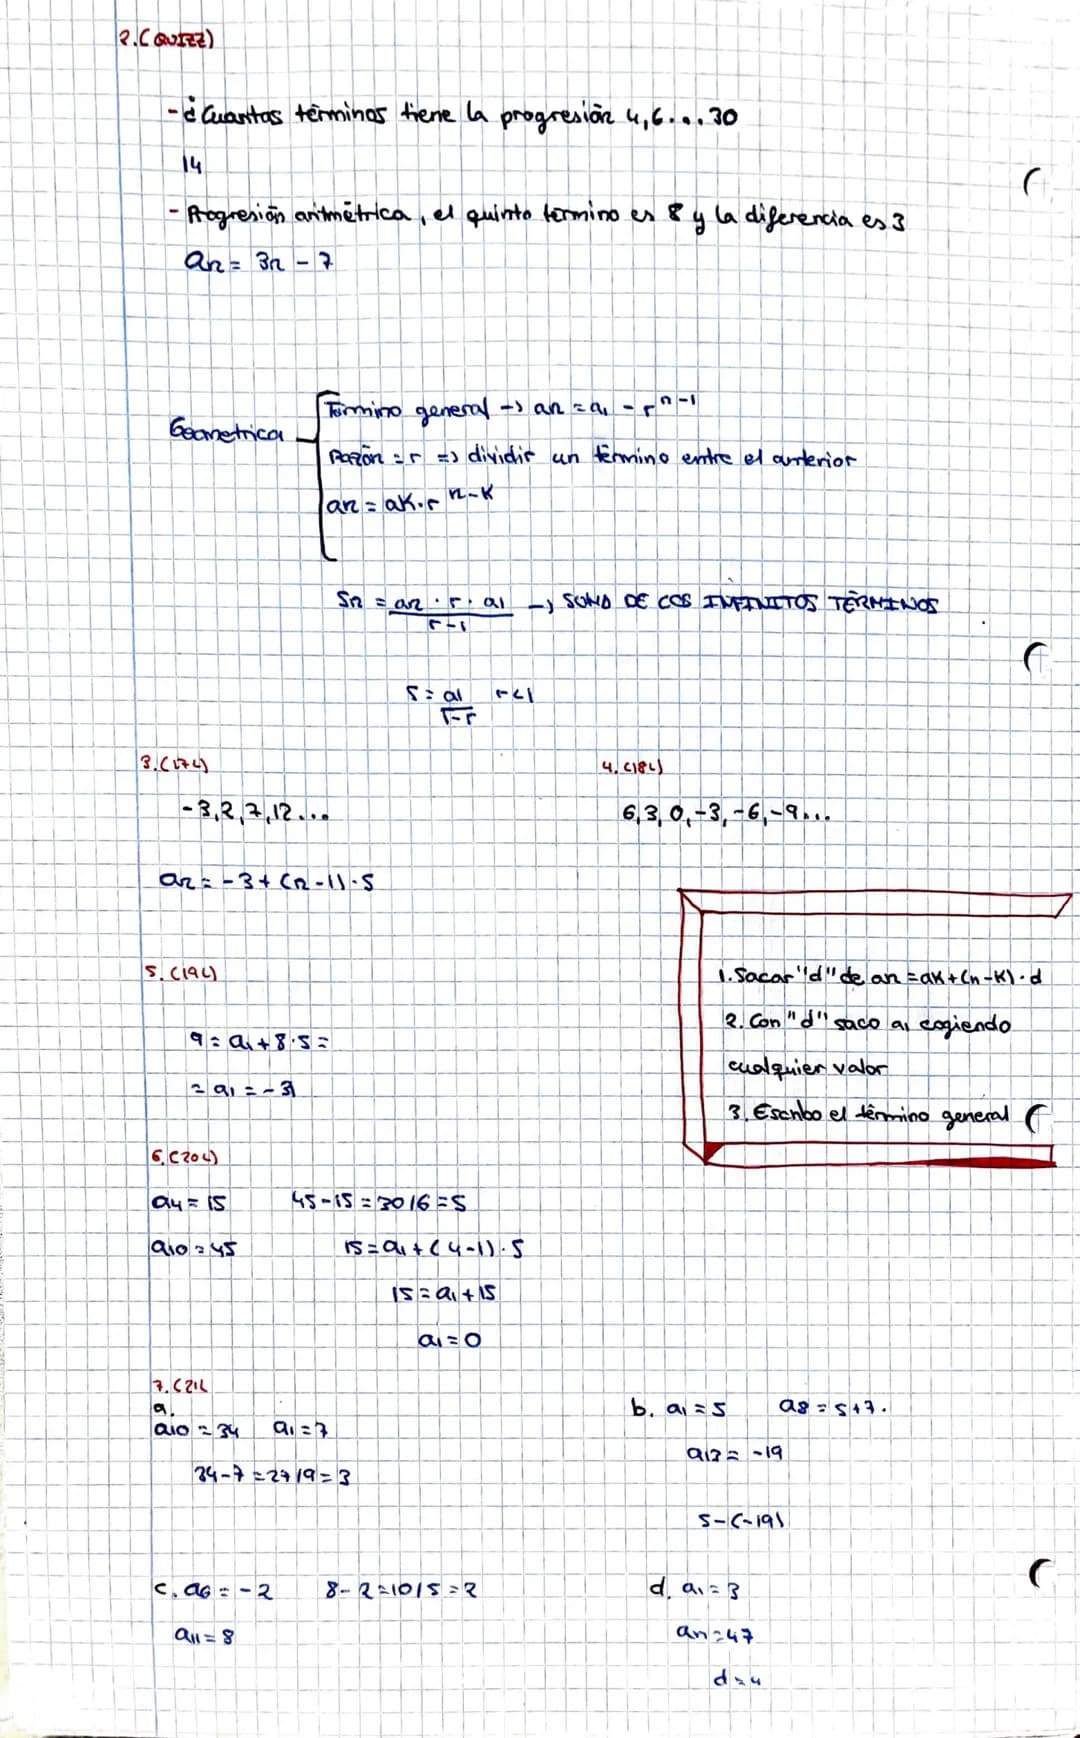 2.(QUIZZ)
- ¿Cuantos términos tiene la progresión 4,6... 30
14
- Progresión aritmétrica, el quinto término es 8 y la diferencia es 3
an = 3n - 7
Geometrica
Término general -> an = a1 - r^n-1
Razón = r => dividir un término entre el anterior
an = ak·r^n-k
Sn = an · r · a1 / r-1 -> SUMA DE LOS INFINITOS TÉRMINOS
S = a1 / 1-r r<1
3.(17L)
4.(18L)
-3,2,7,12...
6,3,0,-3,-6,-9...
an = -3 + (n-1)·5
5.(19L)
1. Sacar "d" de an = ak+(n-k)·d
2. Con "d" saco a1 cogiendo
cualquier valor
3. Escribo el término general
9 = a1 + 8·5 =
= a1 = -31
6.(20L)
a4 = 15 45-15 = 30/6 = 5
a10 = 45 15 = a1 + (4-1)·5
15 = a1 + 15
a1 = 0
7.(21L
a.
a10 = 34 a1 = 7
34-7 = 27/9 = 3
b. a1 = 5 a8 = 5+7.
a13 = -19
5-(-19)
c. a6 = -2 8-2=10/5 = 2
a11 = 8
d. a1 = 3
an = 47
d = 4